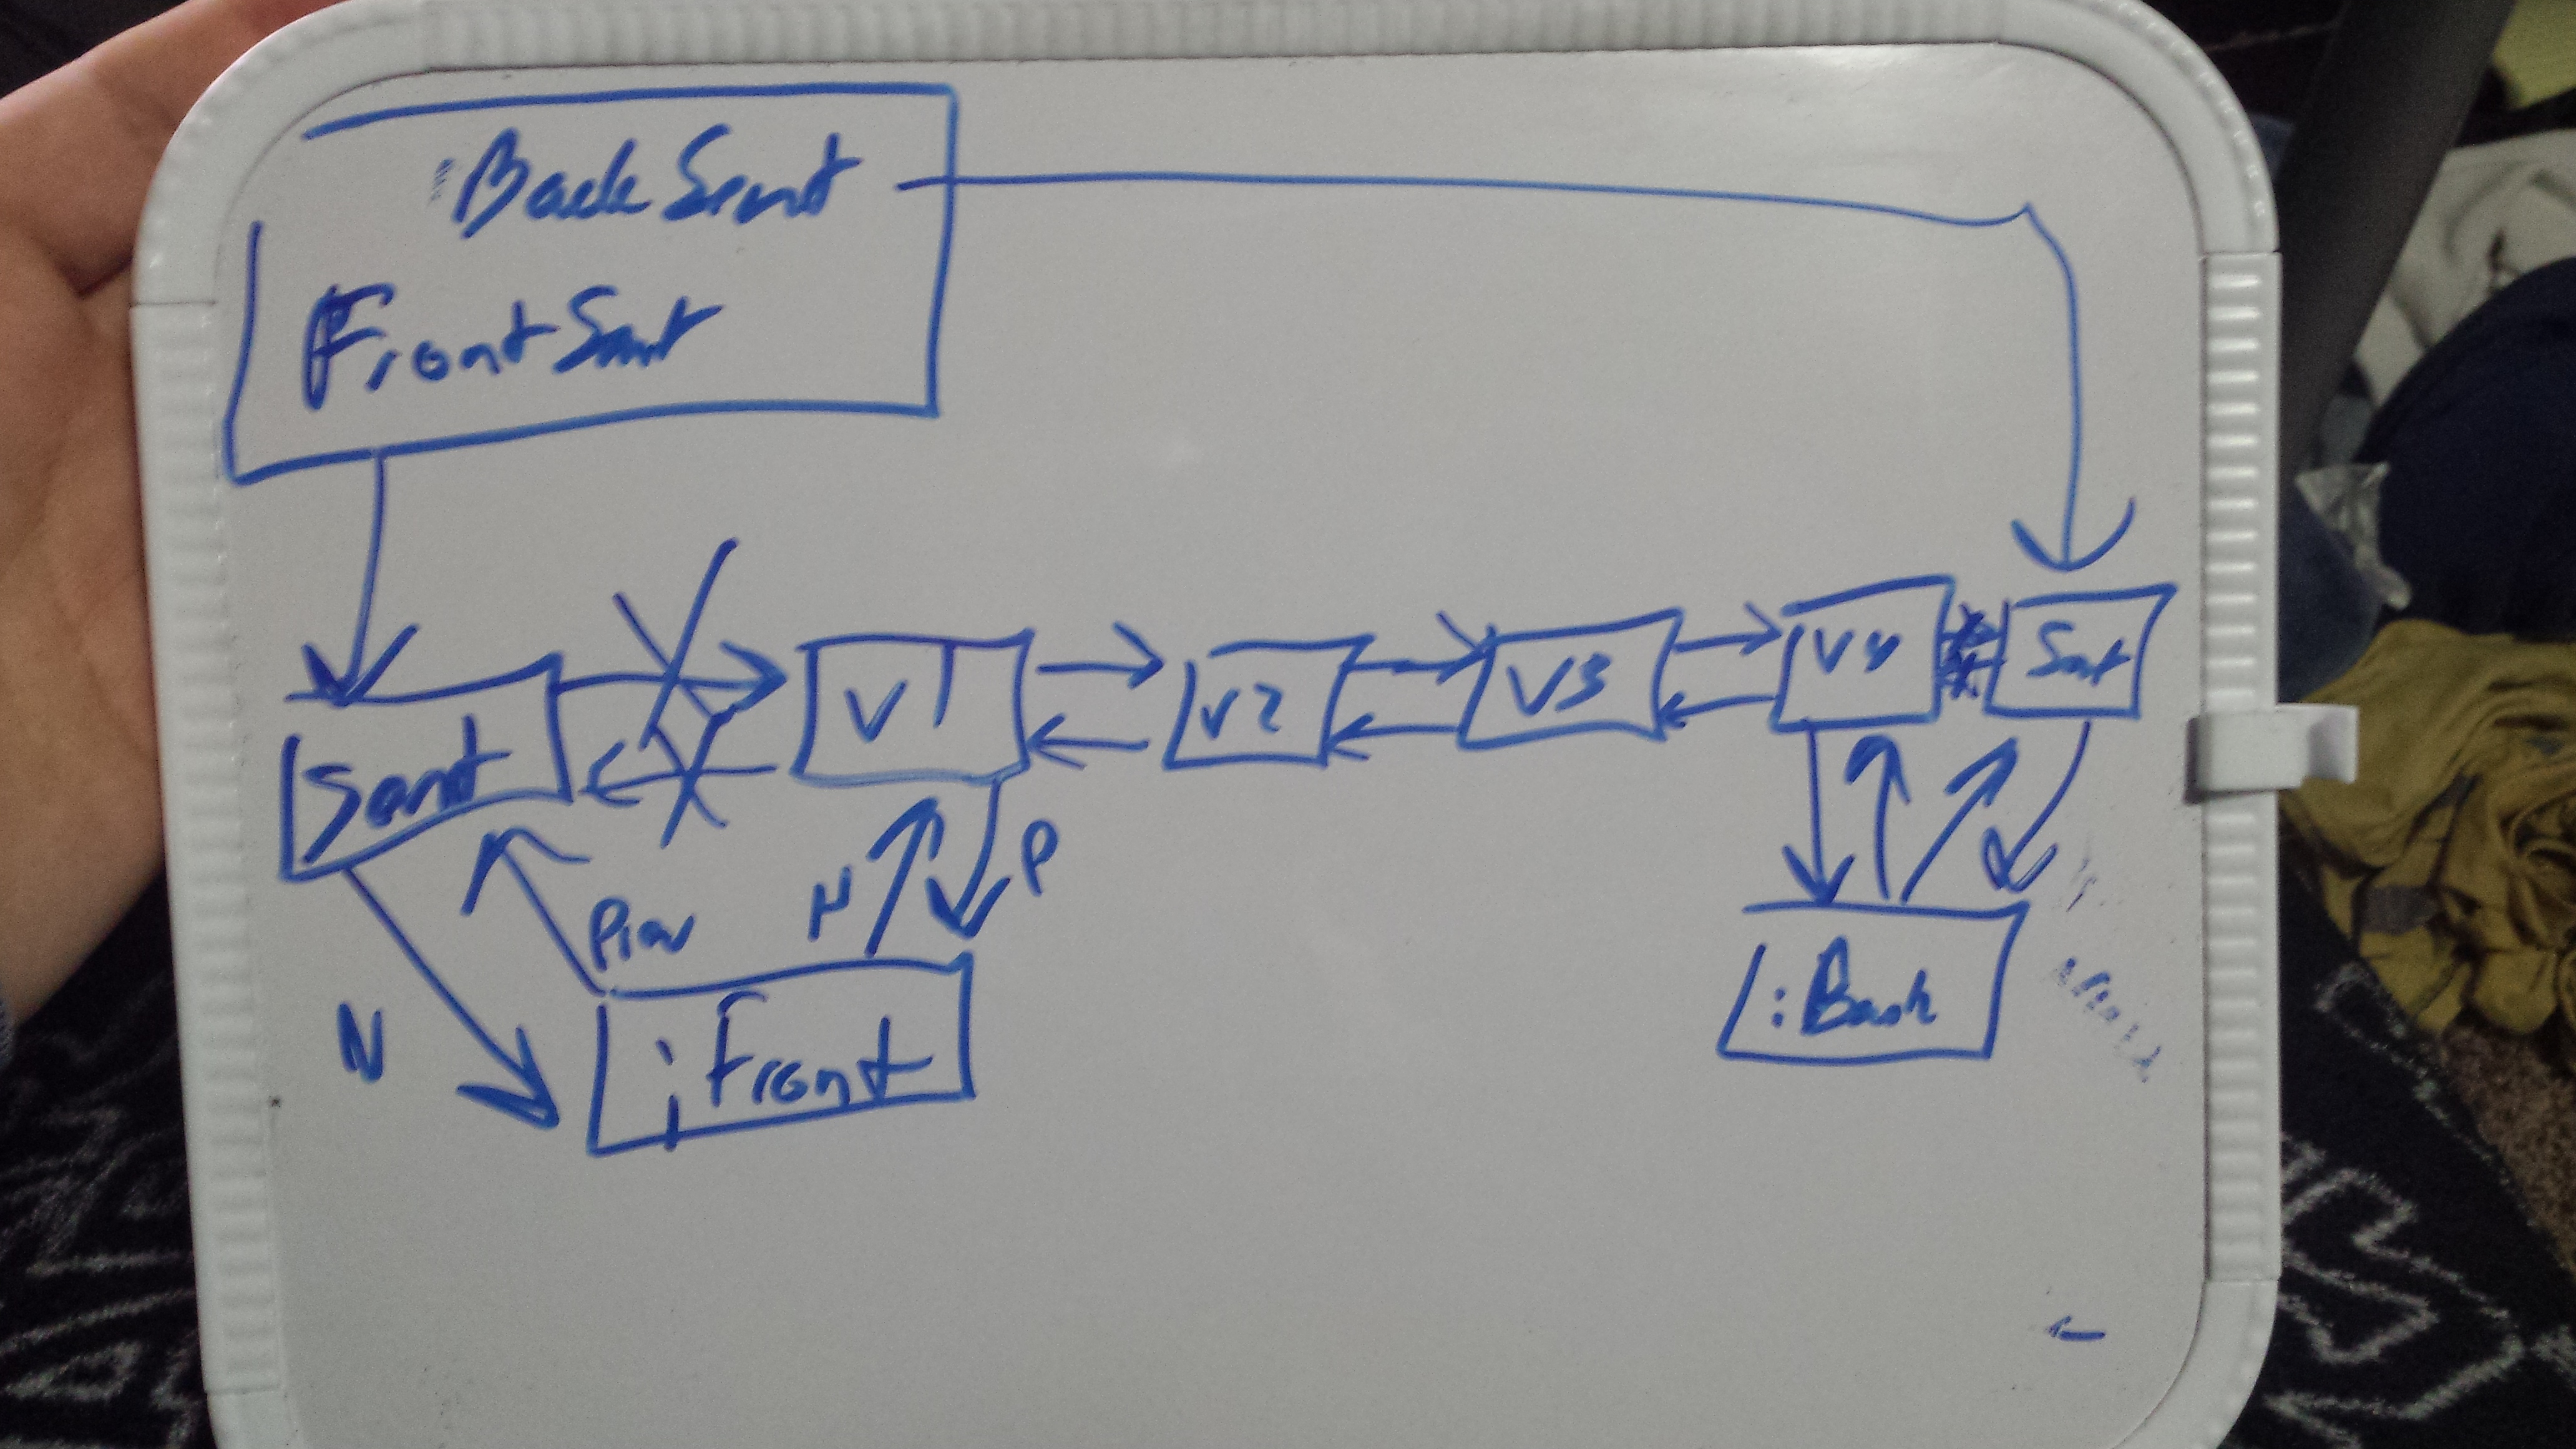 :BackSent
FrontSent
Sent
V1
V2
V3
V4
Sent
N
P
N
:Front
:Back